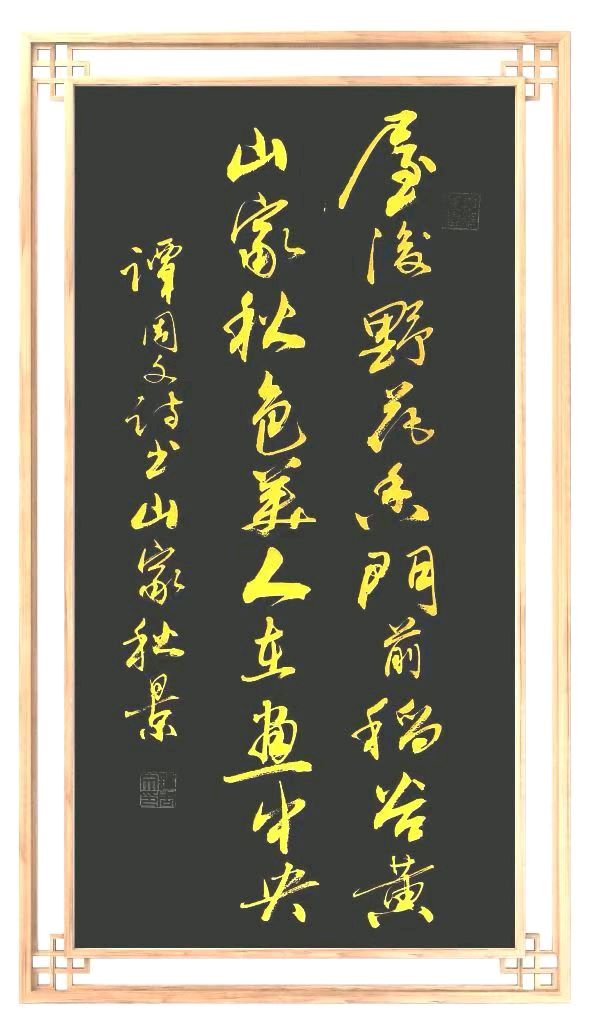 屋後野花香門前稻谷黃
山家秋色美人在畫中央
譚周文詩书山家秋景